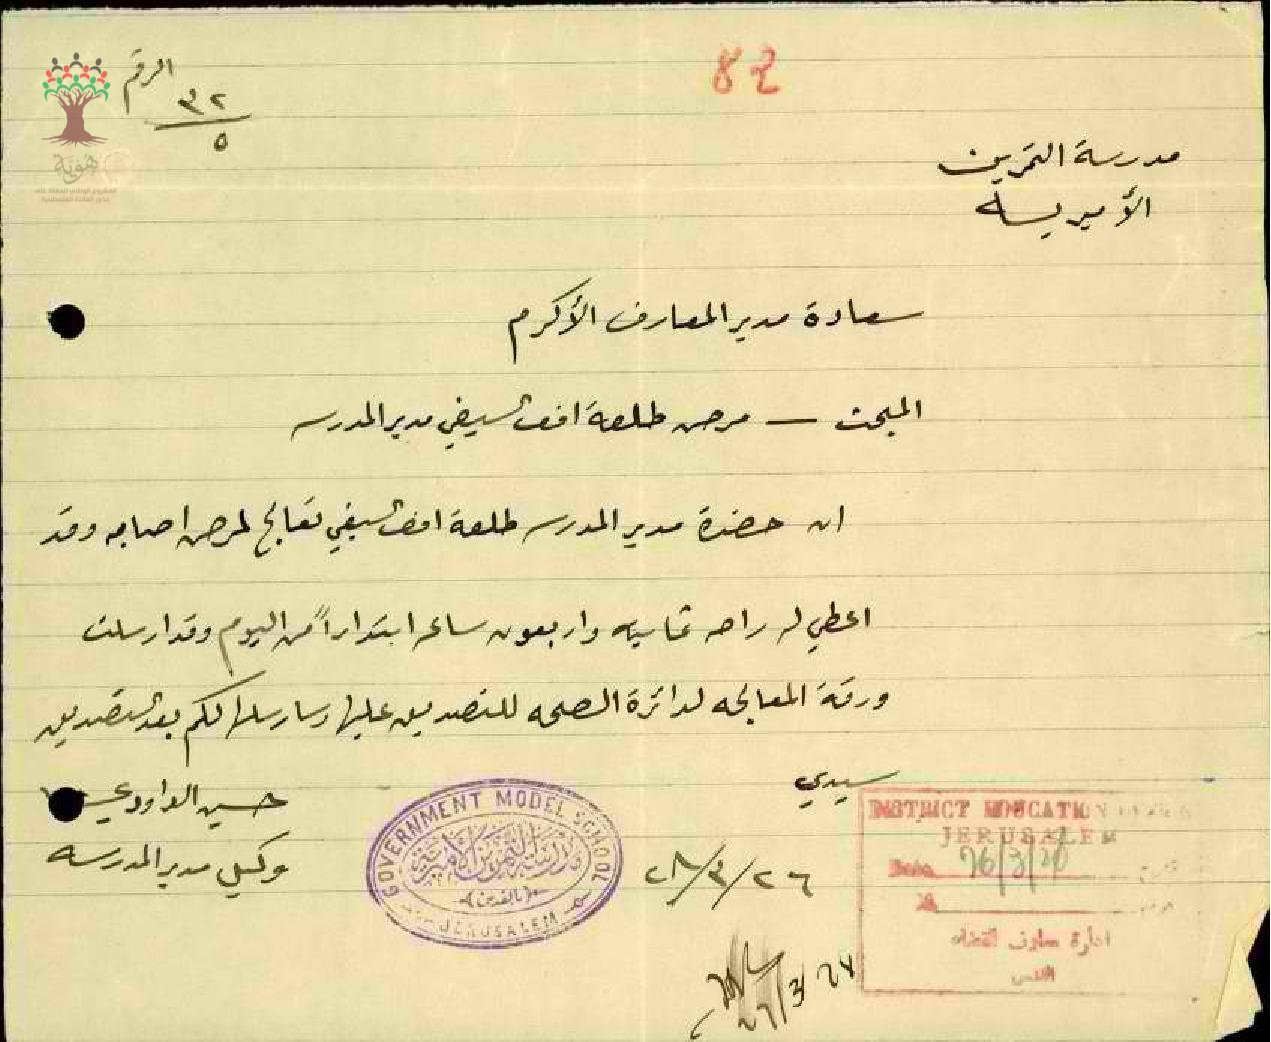 الرقم
٣٢
٥
82
مدرسة التمرين
الأميرية
هوية
المشروع الوطني للحفاظ على
جذور العائلة الفلسطينية
سعادة مدير المعارف الأكرم
المبحث — مرض طلعة افندي السيفي مدير المدرسه
ان حضرة مدير المدرسه طلعة افندي السيفي تعالج لمرض اصابه وقد
اعطي له راحه ثمانيه واربعون ساعه ابتداراً من اليوم وقد ارسلت
ورقة المعالجه لدائرة الصحه للتصديق عليها وسارسلها لكم بعد التصديق
سيدي
حسين الداودي
وكيل مدير المدرسه
GOVERNMENT MODEL SCHOOL
مدرسة التمرين الأميرية
(بالقدس)
JERUSALEM
٢٨/٣/٢٦
DISTRICT EDUCATION
JERUSALEM
Date 26/3/28
No
ادارة معارف القضاء
القدس
26/3/28